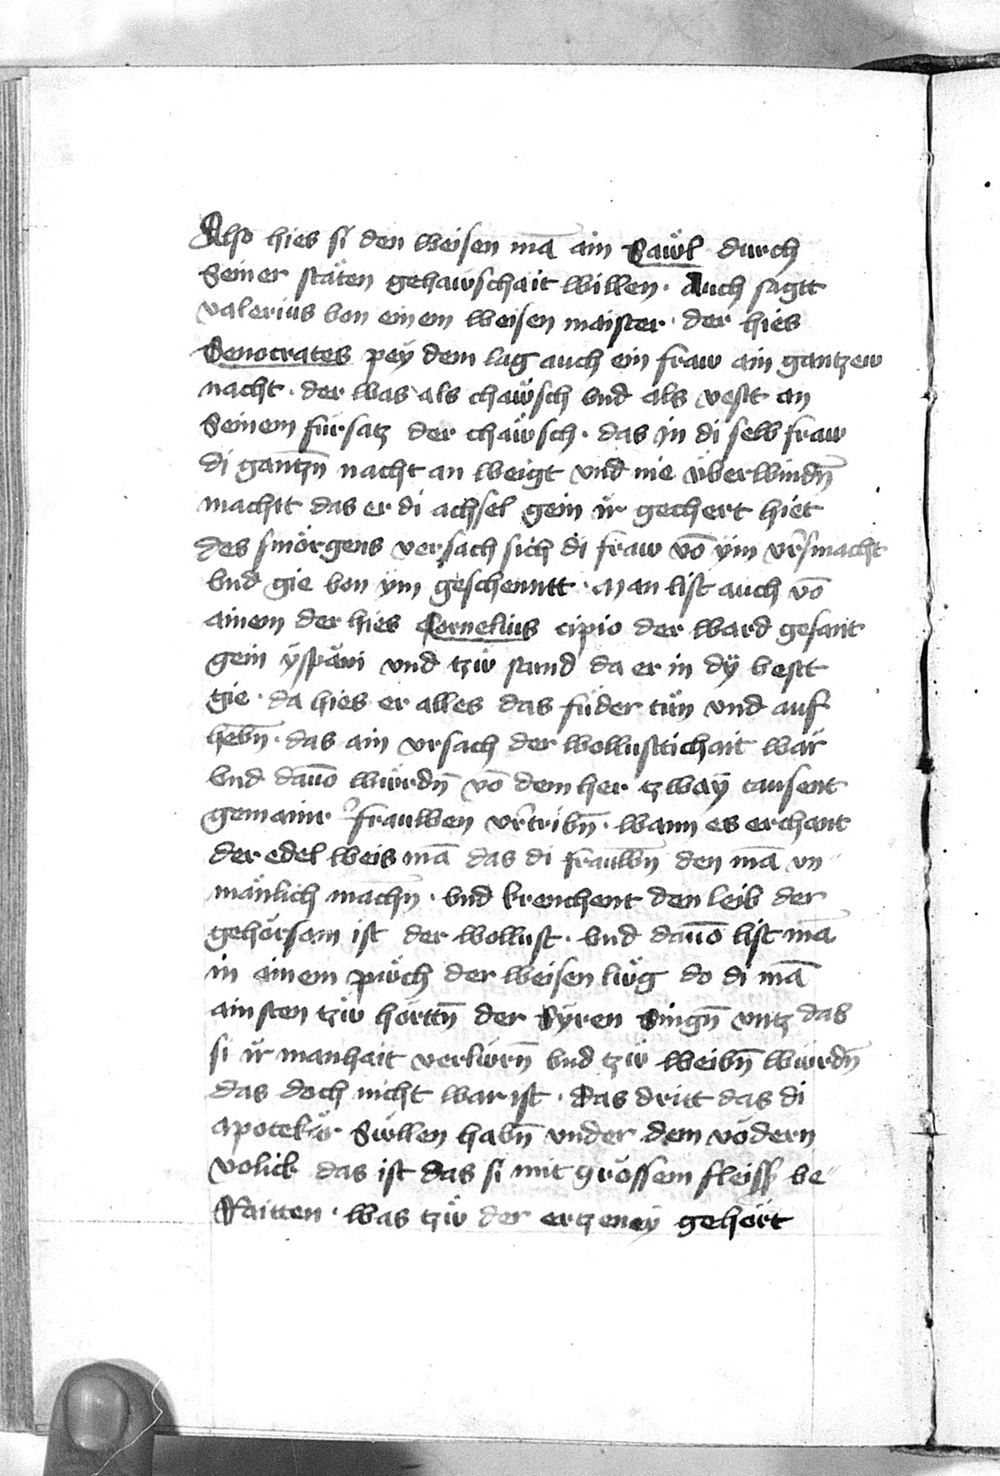 Also hies si den weisen mā ain Sawͤl durch
Seiner stäten gehawschait willen · Auch sagtt
valerius von einem weisen maister · der hies
Senocrates peÿ dem lag auch ein fraw ain gantzew
nacht · der was als chawͤsch vnd als vestt an
Seinem fürsatz der chawͤsch · das in di selb fraw
di gantzn̄ nacht an weigt vnd nie überwindn̄
machtt das er di achsel gein ir gechert hiet
des smorgens versach sich di fraw vō ÿm vʼsmacht
vnd gie von ÿm geschenntt · Man list auch vō
ainem der hies Cornelius cipio der ward gesant
gein ÿspäni vnd tzuͤ stund da er in dÿ vestt
gie · da hies er alles das füder tün vnd auf
hebn̄ · das ain vrsach der wollusttichait wär
vnd dauō würdn̄ vō dem her tzwaÿ tausent
gemainr frauwen vʼtribn̄ · wann es erchant
der edel weis mā das di frauwn̄ den mā vn
mänlich machn̄ · vnd krenchent den leib der
gehörsam ist der wollust · vnd dauō list mā
in ainem puͤch der weisen luͤg do di mā
ainsten tzuͤ hörttn̄ der Sÿren Singn̄ vntz das
si ir manhait verlürn̄ vnd tzuͤ weibn̄ würdn̄
das doch nicht war ist · Das dritt das di
apotekär Süllen habn̄ vnder dem vödern
volick das ist das si mit grossem fleiss be
Raitten · was tzuͤ der ertzeneÿ gehört